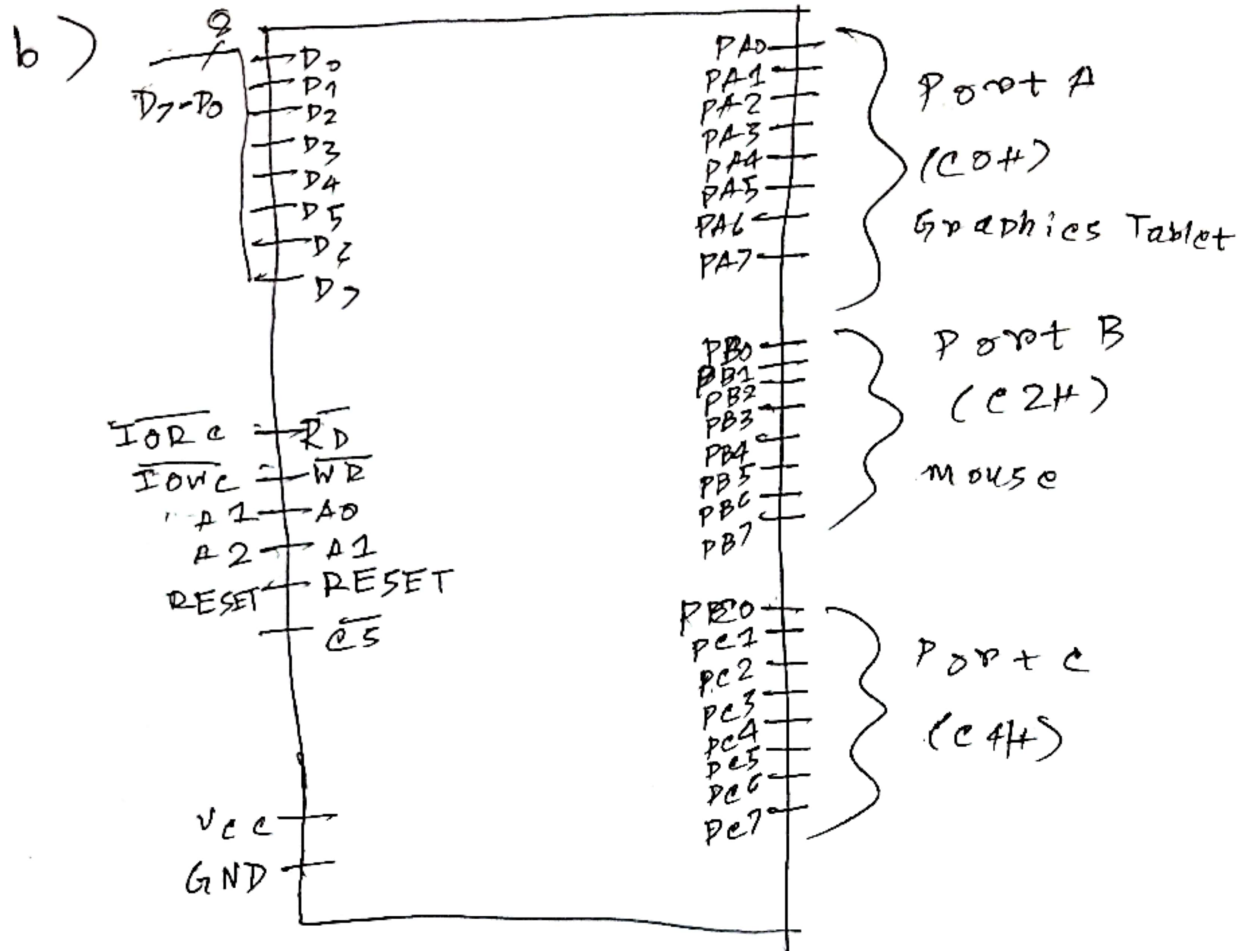 b)
8
D7-D0
D0
D1
D2
D3
D4
D5
D6
D7
IORC RD
IOWC WR
A1 A0
A2 A1
RESET RESET
CS
VCC
GND
PA0
PA1
PA2
PA3
PA4
PA5
PA6
PA7
Port A
(C0H)
Graphics Tablet
PB0
PB1
PB2
PB3
PB4
PB5
PB6
PB7
Port B
(C2H)
mouse
PC0
PC1
PC2
PC3
PC4
PC5
PC6
PC7
Port C
(C4H)